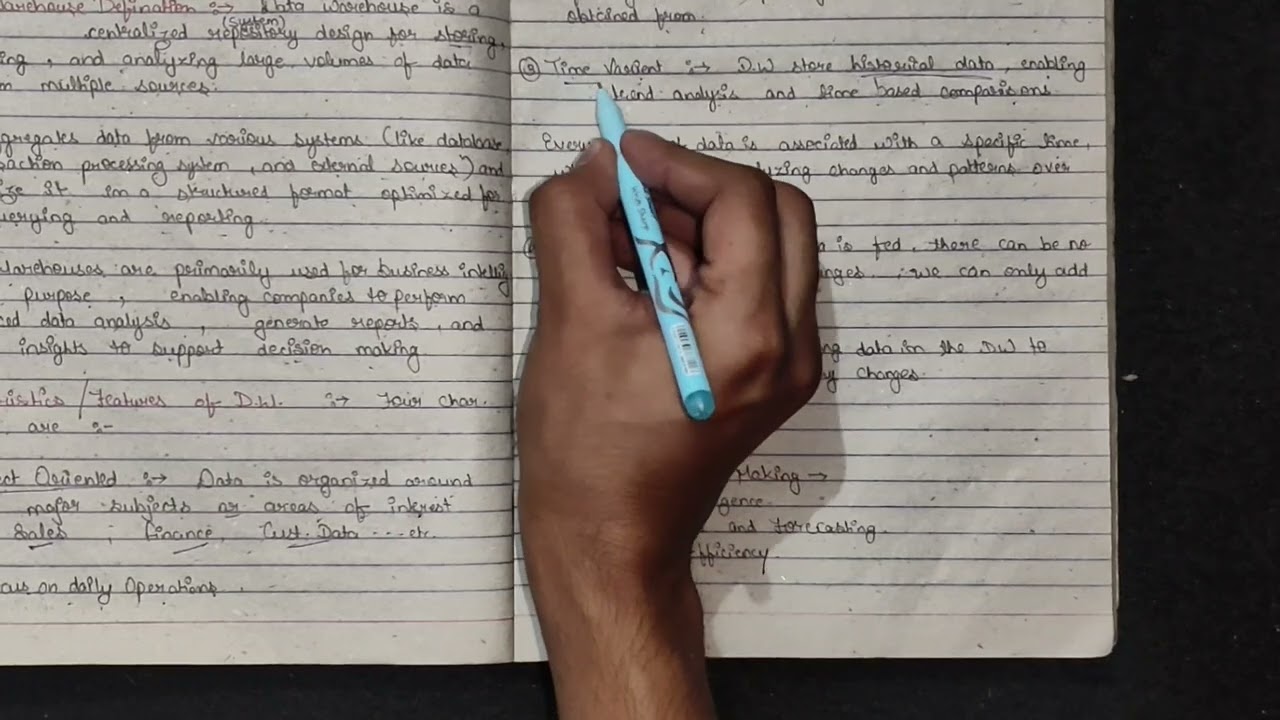 Warehouse Defination :→ Data warehouse is a
(system)
centralized repository design for storing,
ing, and analyzing large volumes of data
m multiple sources.
gregates data from various systems (like database
action processing system, and external sources) and
ze it in a structured format optimized for
uerying and reporting.
Warehouses are primarily used for business intellig
purpose, enabling companies to perform
ced data analysis, generate reports, and
insights to support decision making
istics / Features of D.W. :→ Four char.
are :-
ect Oriented :→ Data is organized around
major subjects or areas of interest
Sales, Finance, Cust. Data ... etc.
cus on daily Operations.
obtained from.
③ Time Varient :→ D.W store historical data, enabling
trend analysis and time based comparisons.
Every data is associated with a specific time,
yzing changes and patterns over
a is fed, there can be no
nges. ; we can only add
ng data in the DW to
y changes.
Making →
gence
and forecasting.
efficiency